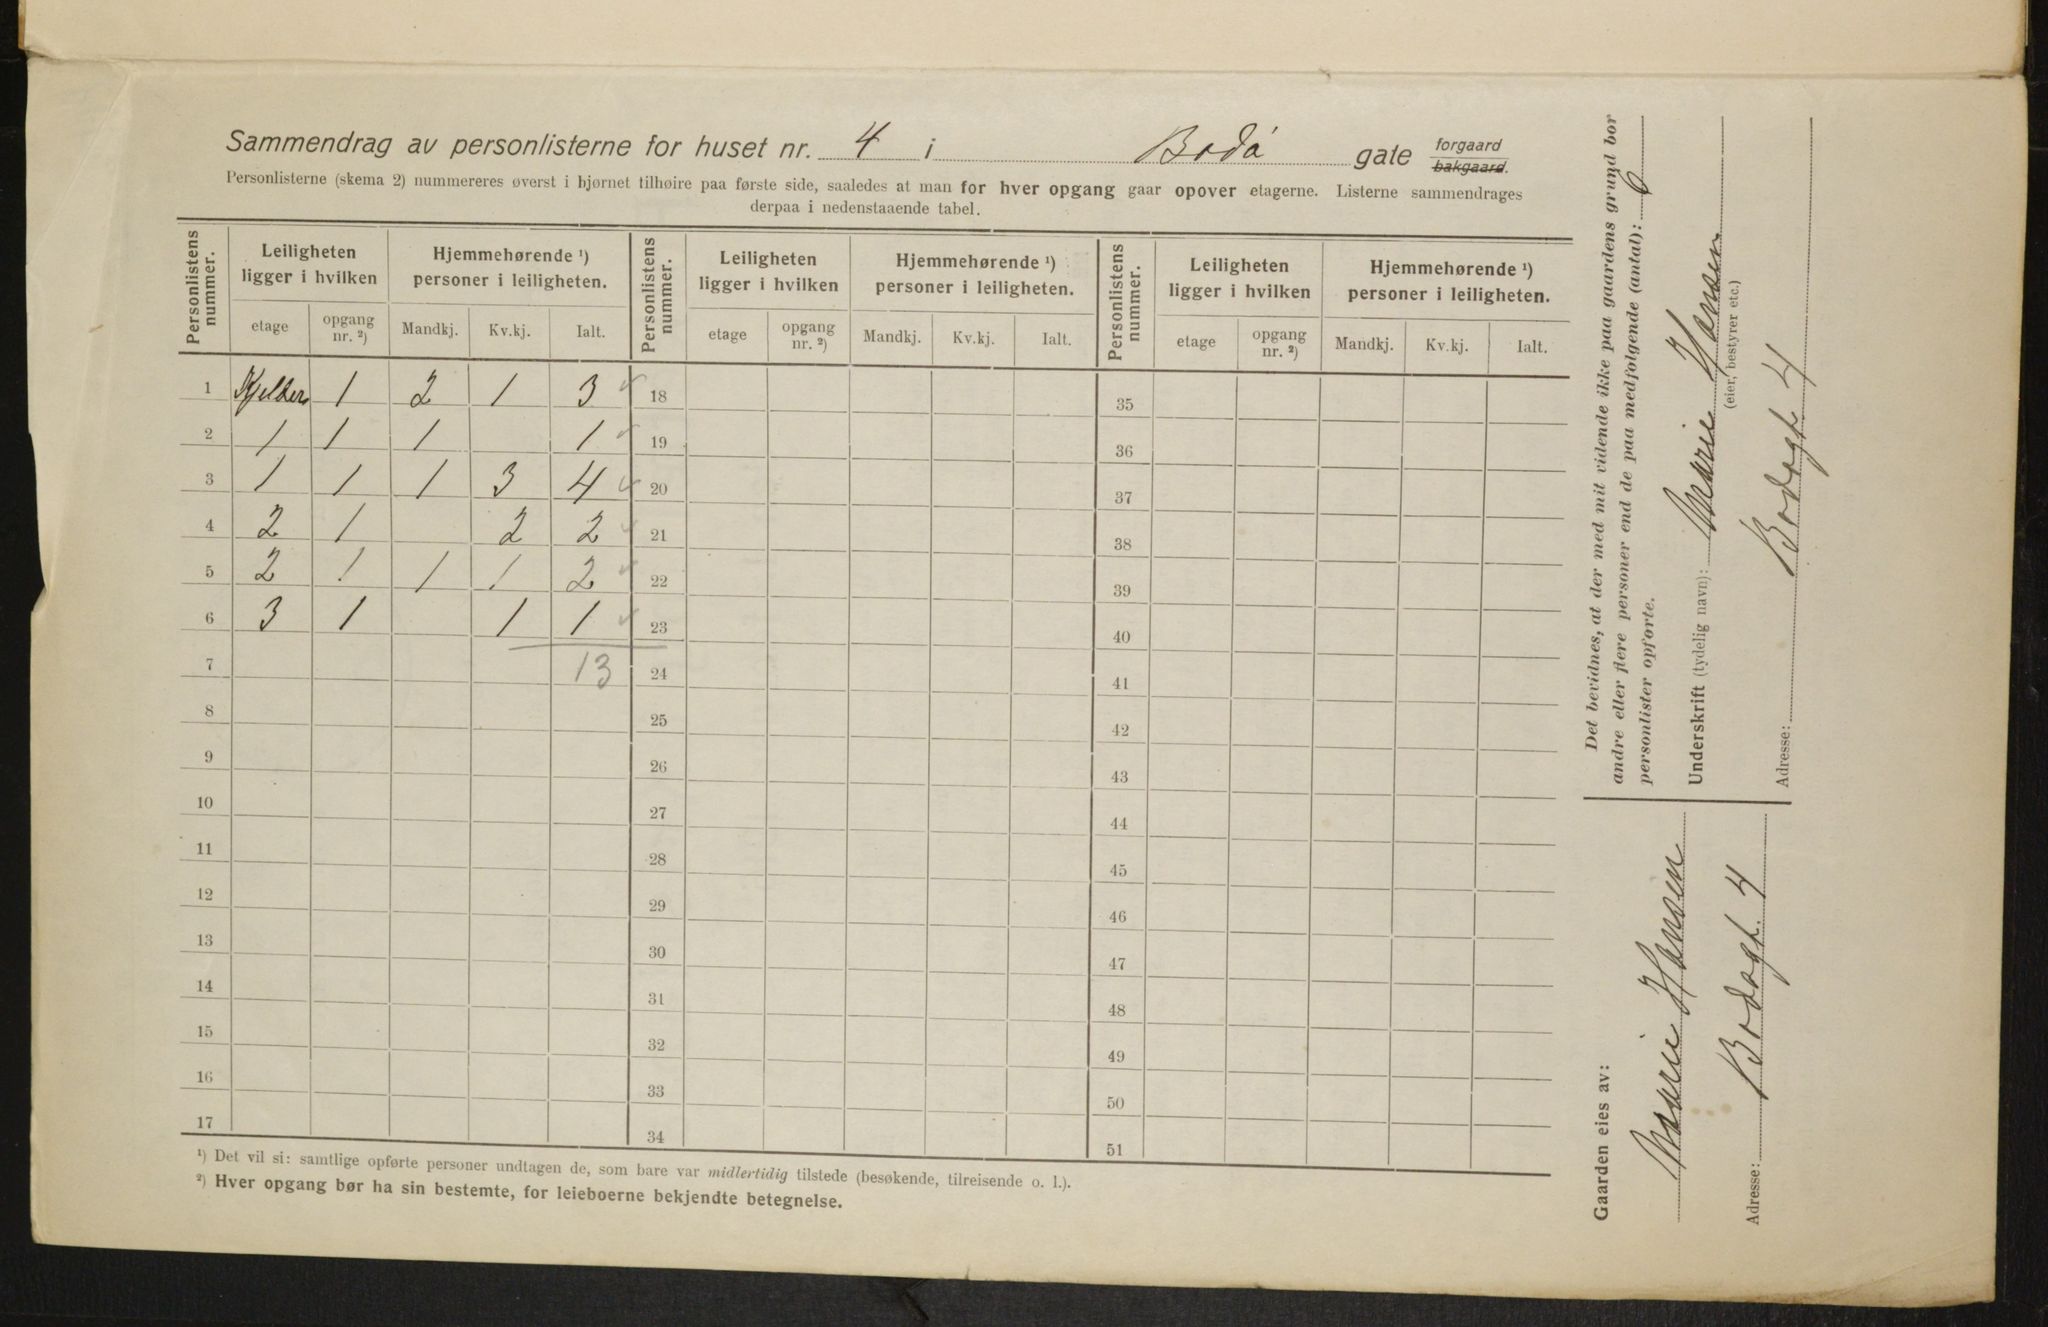 Sammendrag av personlisterne for huset nr. 4 i Bodø gate forgaard bakgaard.
Personlisterne (skema 2) nummereres øverst i hjørnet tilhøire paa første side, saaledes at man for hver opgang gaar opover etagerne. Listerne sammendrages
derpaa i nedenstaaende tabel.
Personlistens nummer. Leiligheten ligger i hvilken Hjemmehørende ¹) personer i leiligheten. Personlistens nummer. Leiligheten ligger i hvilken Hjemmehørende ¹) personer i leiligheten. Personlistens nummer. Leiligheten ligger i hvilken Hjemmehørende ¹) personer i leiligheten.
etage opgang nr. ²) Mandkj. Kv.kj. Ialt. etage opgang nr. ²) Mandkj. Kv.kj. Ialt. etage opgang nr. ²) Mandkj. Kv.kj. Ialt.
1 Kjelder 1 2 1 3 18 35
2 1 1 1 1 19 36
3 1 1 1 3 4 20 37
4 2 1 2 2 21 38
5 2 1 1 1 2 22 39
6 3 1 1 1 23 40
7 13 24 41
8 25 42
9 26 43
10 27 44
11 28 45
12 29 46
13 30 47
14 31 48
15 32 49
16 33 50
17 34 51
¹) Det vil si: samtlige opførte personer undtagen de, som bare var midlertidig tilstede (besøkende, tilreisende o. l.).
²) Hver opgang bør ha sin bestemte, for leieboerne bekjendte betegnelse.
Det bevidnes, at der med mit vidende ikke paa gaardens grund bor
andre eller flere personer end de paa medfølgende (antal): 6
personlister opførte.
Underskrift (tydelig navn): Marie Hansen
(eier, bestyrer etc.)
Adresse: Bodøgt. 4
Gaarden eies av:
Marie Hansen
Adresse: Bodøgt. 4